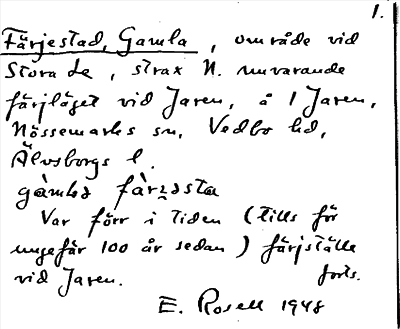 1.
Färjestad, Gamla, område vid
Stora Le, strax N. nuvarande
färjläget vid Jaren, å 1 Jaren,
Nössemarks sn, Vedbo hd,
Älvsborgs l.
gàmlə fàrjəsta
Var förr i tiden (tills för
ungefär 100 år sedan) färjställe
vid Jaren. forts.
E. Rosell 1948